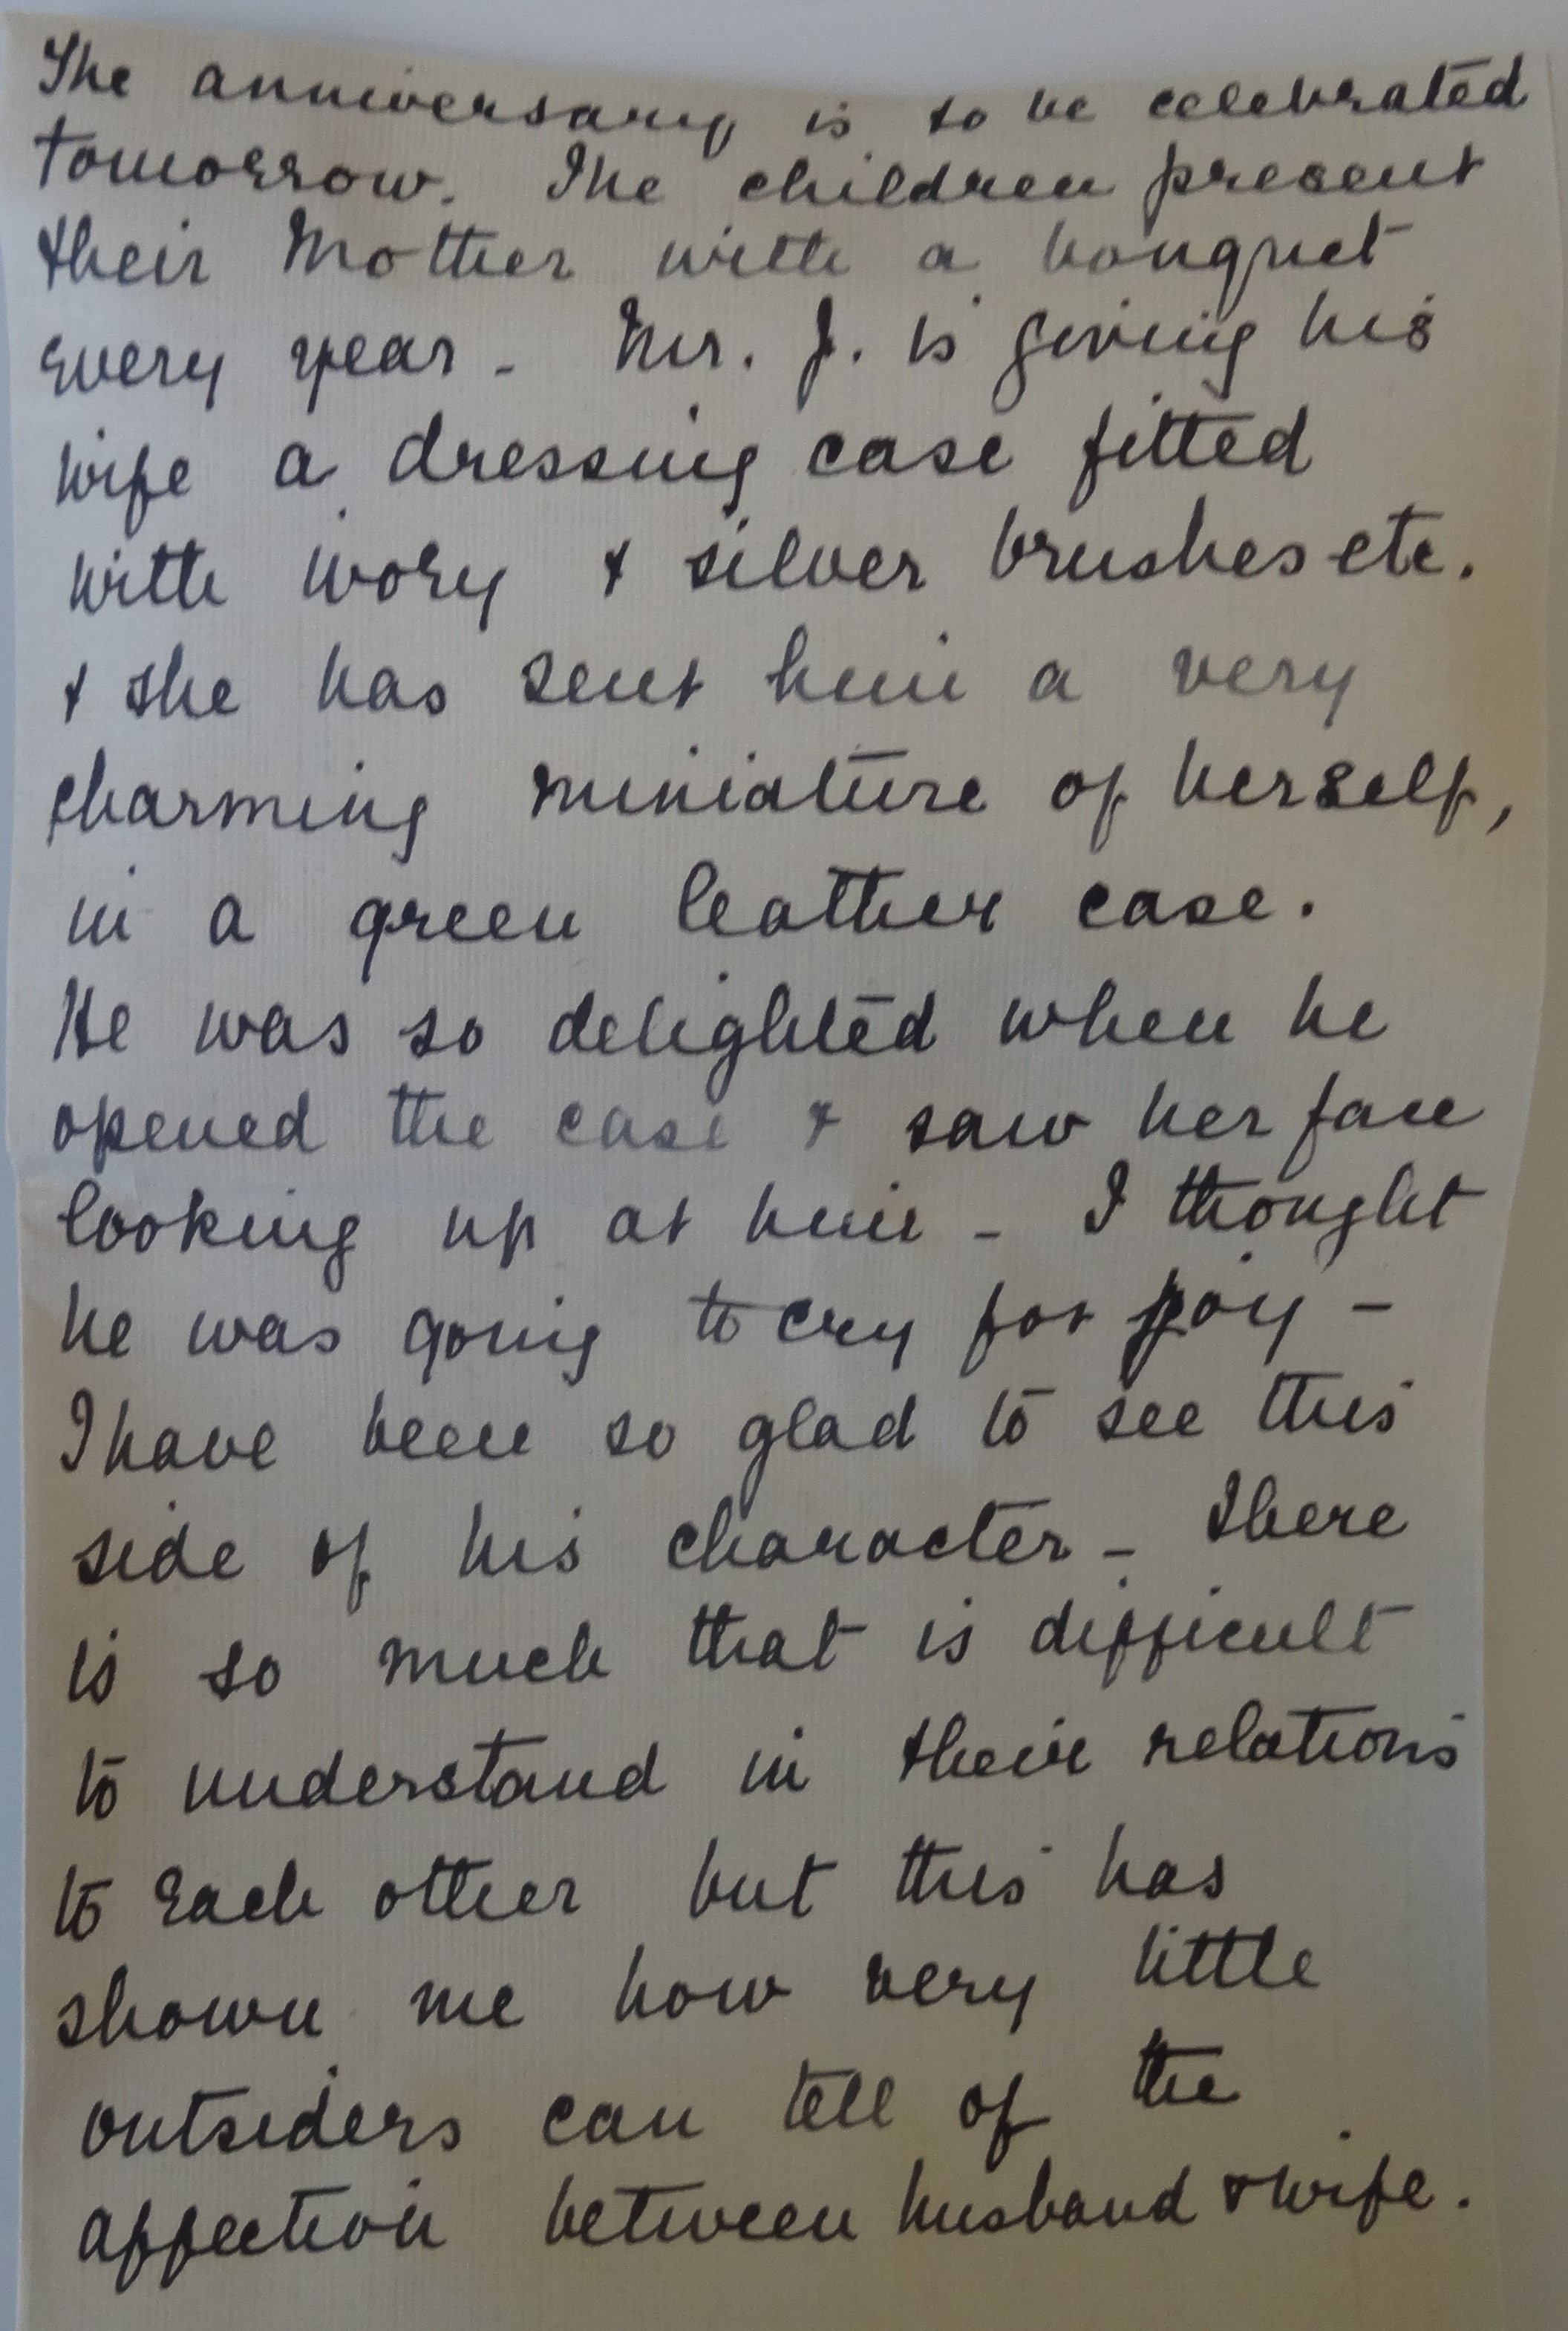 The anniversary is to be celebrated
tomorrow. The children present
their Mother with a bouquet
every year - Mr. J. is giving his
wife a dressing case fitted
with ivory & silver brushes etc.
& she has sent him a very
charming miniature of herself,
in a green leather case.
He was so delighted when he
opened the case & saw her face
looking up at him - I thought
he was going to cry for joy -
I have been so glad to see this
side of his character - There
is so much that is difficult
to understand in their relations
to each other but this has
shown me how very little
outsiders can tell of the
affection between husband & wife.